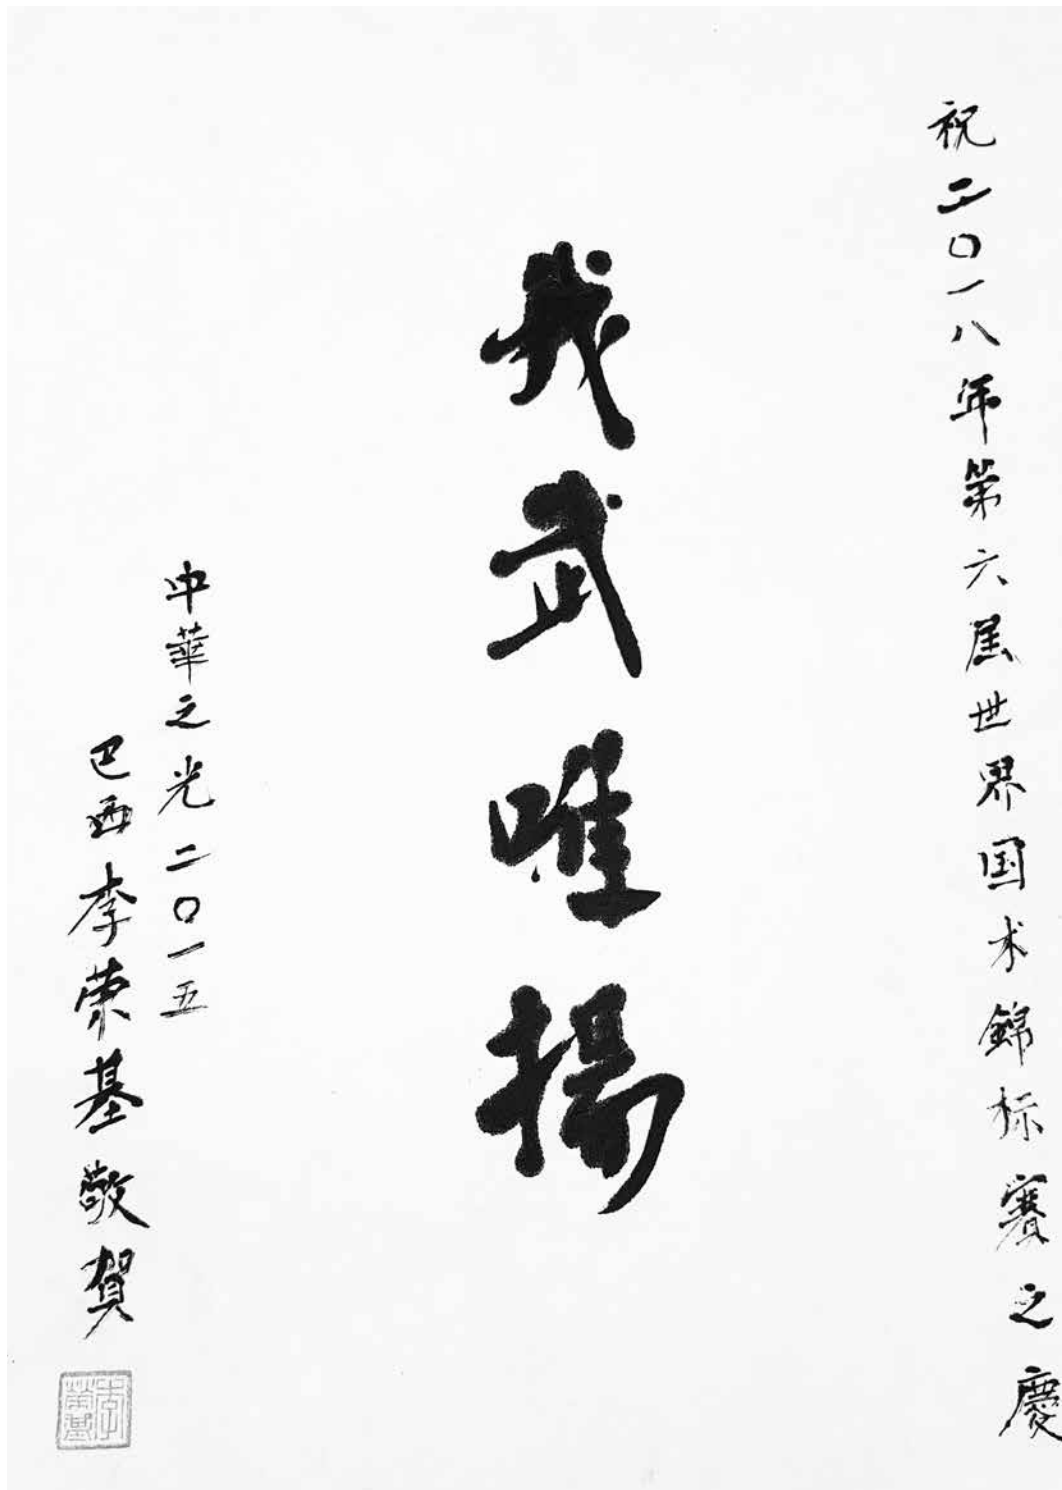 祝二〇一八年第六届世界国术錦标賽之慶
我武唯揚
中華之光二〇一五
巴西李荣基敬賀
李荣基